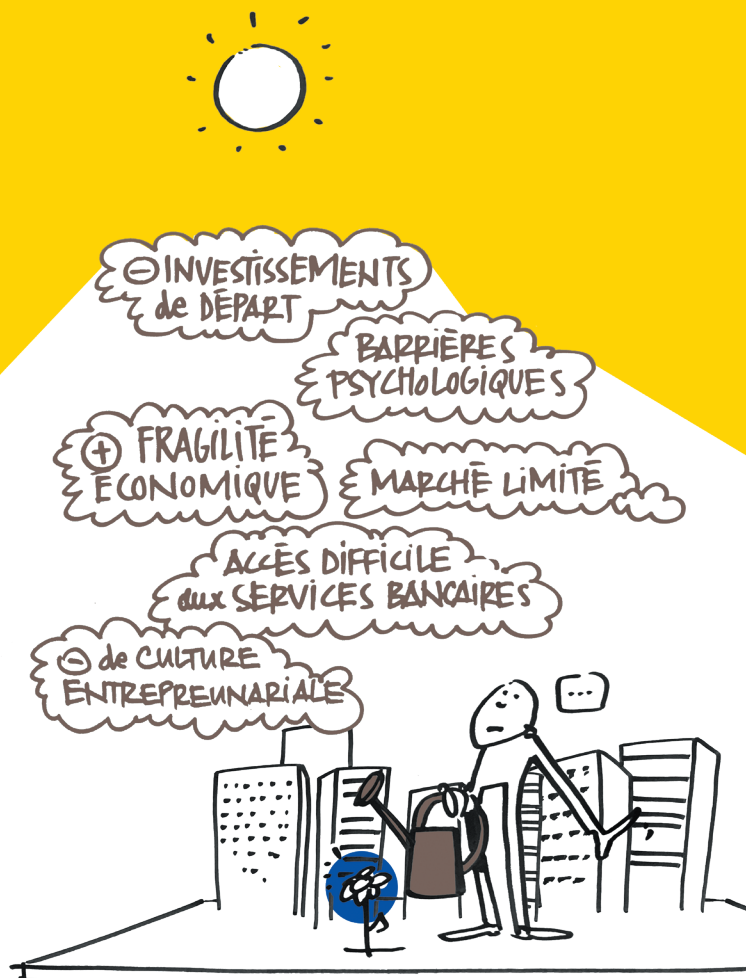 ⊖ INVESTISSEMENTS
de DÉPART
BARRIÈRES
PSYCHOLOGIQUES
⊕ FRAGILITÉ
ÉCONOMIQUE
MARCHÉ LIMITÉ
ACCÈS DIFFICILE
aux SERVICES BANCAIRES
⊖ de CULTURE
ENTREPREUNARIALE
...